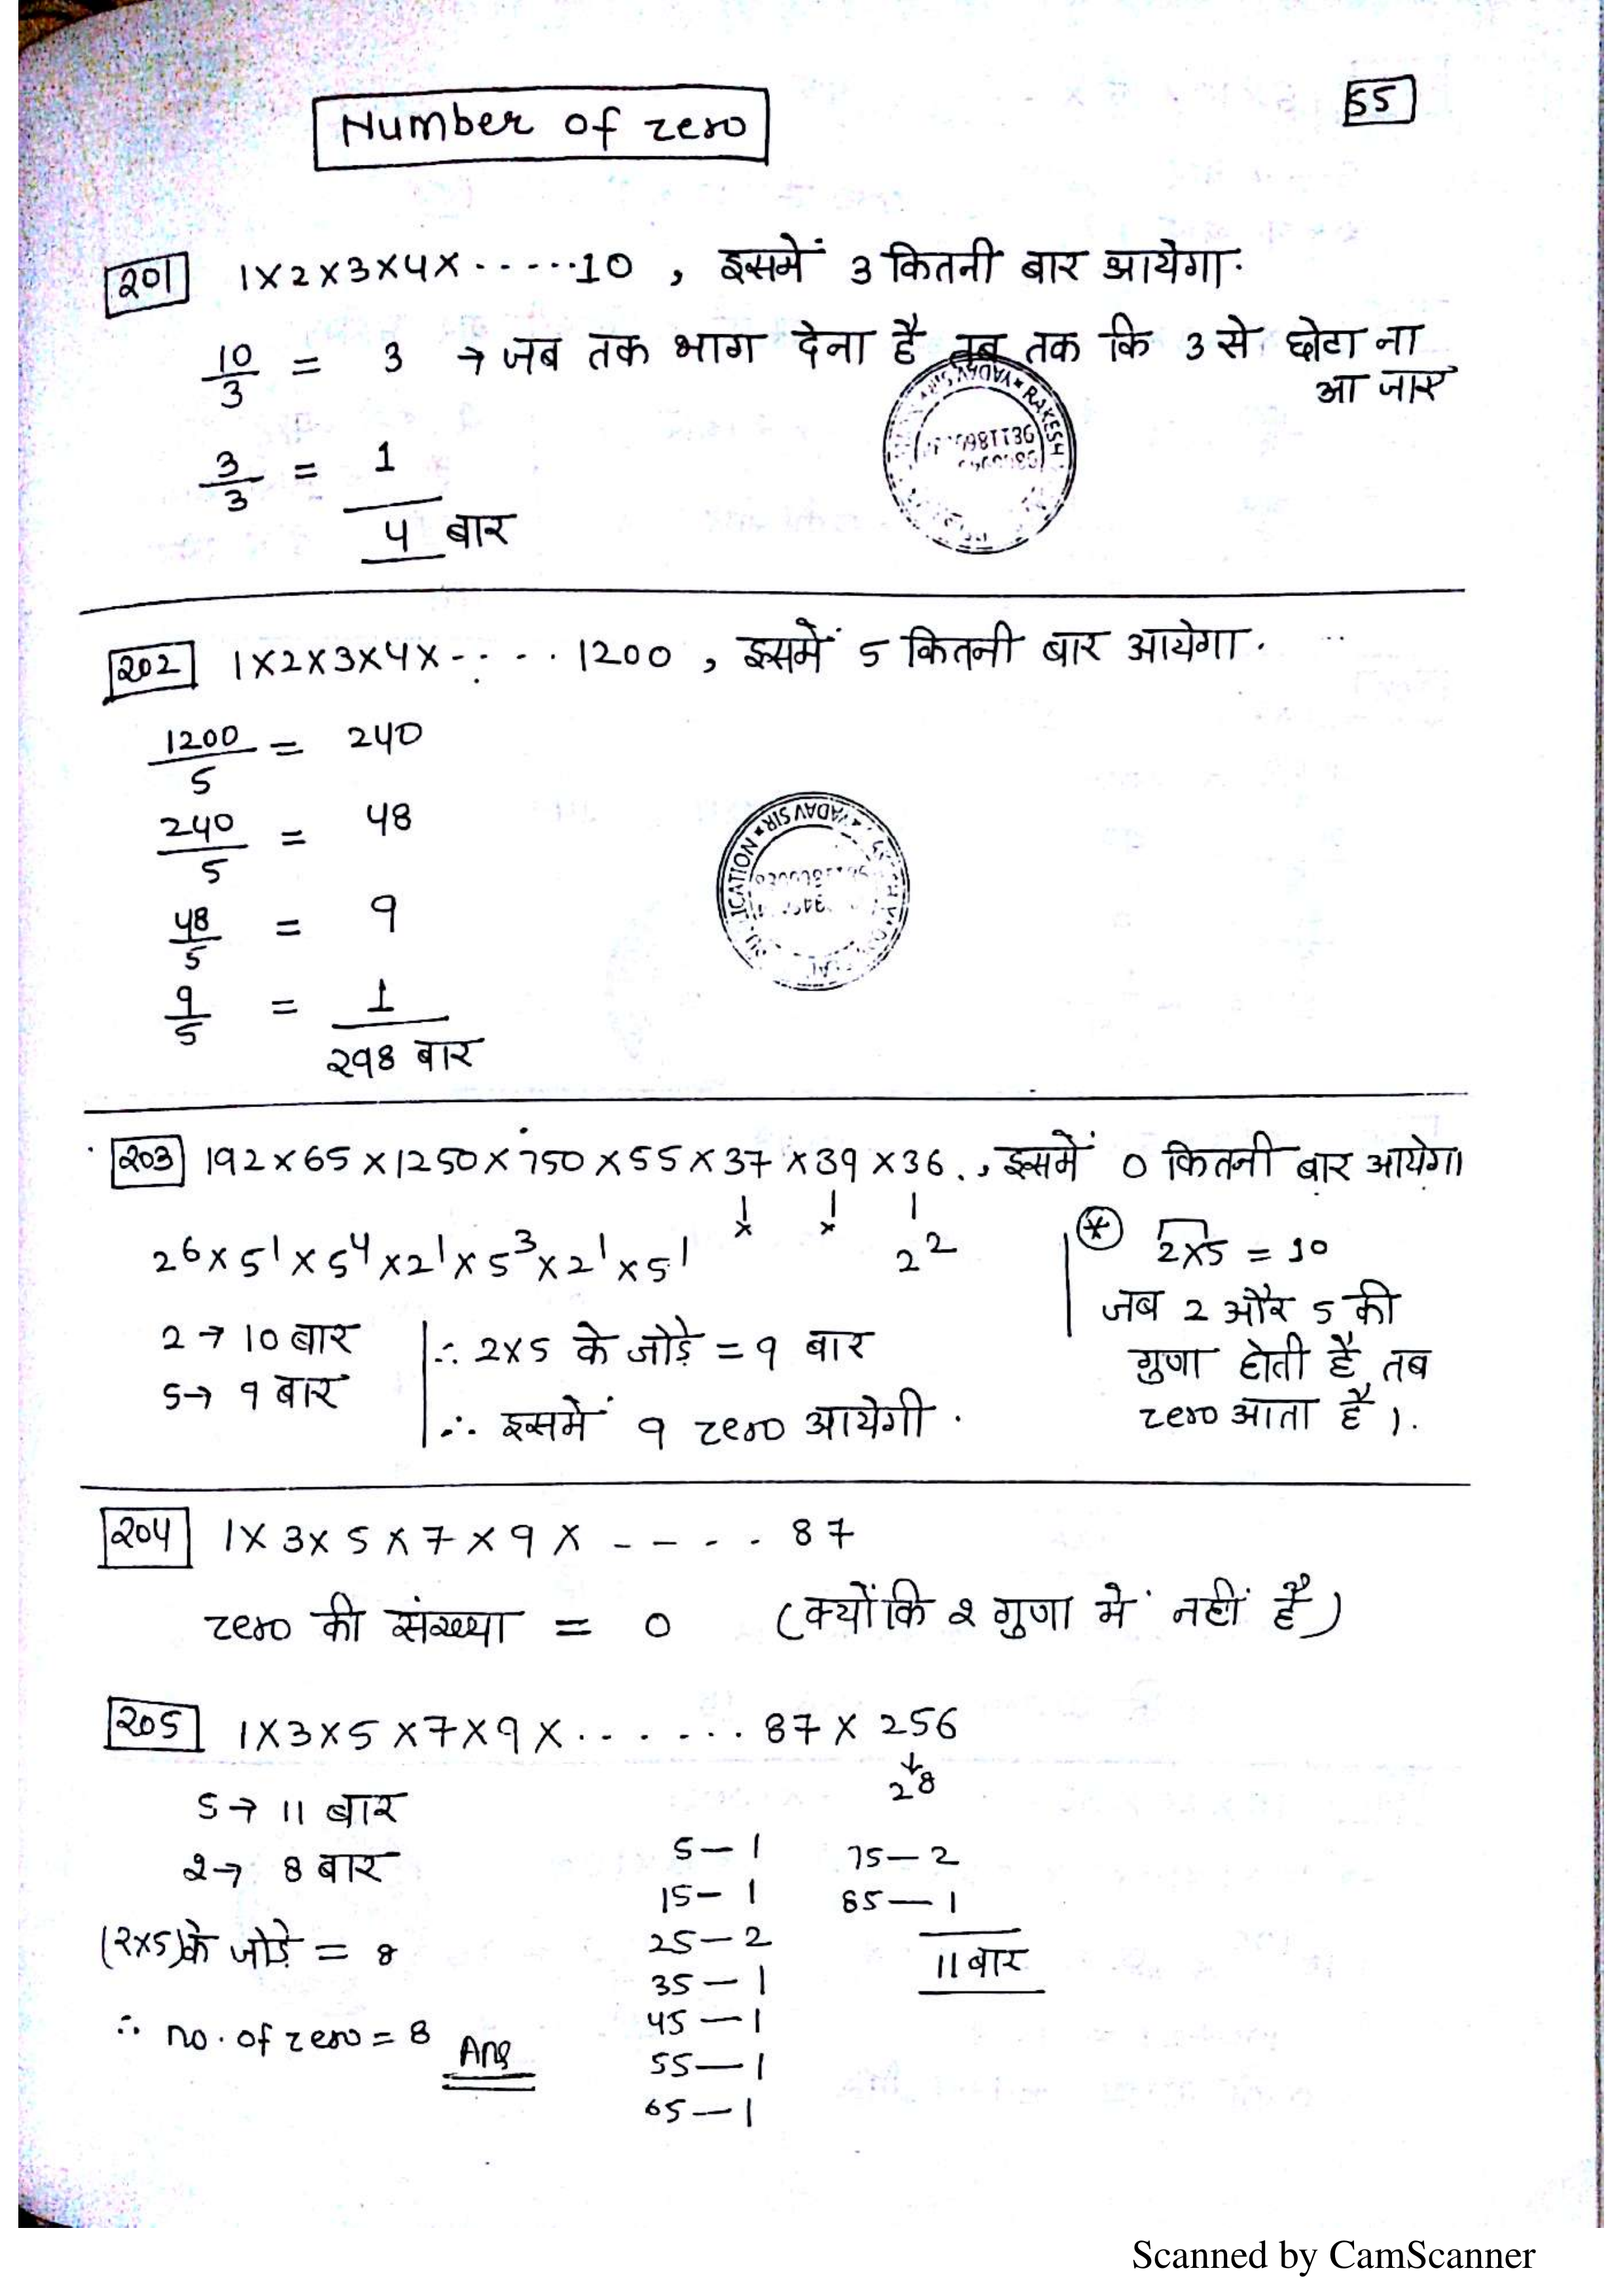 Number of zero
55
201 1×2×3×4×......10 , इसमें 3 कितनी बार आयेगा.
10/3 = 3 → जब तक भाग देना है तब तक कि 3 से छोटा ना
आ जाए
3/3 = 1
4 बार
YADAV SIR * RAKESH
202 1×2×3×4×-....1200 , इसमें 5 कितनी बार आयेगा.
1200/5 = 240
240/5 = 48
48/5 = 9
9/5 = 1
298 बार
YADAV SIR
203 192×65×1250×750×55×37×39×36., इसमें 0 कितनी बार आयेगा
2^6×5^1×5^4×2^1×5^3×2^1×5^1 × × 2^2
2 → 10 बार
5 → 9 बार
∴ 2×5 के जोड़े = 9 बार
∴ इसमें 9 zero आयेगी.
* 2×5 = 10
जब 2 और 5 की
गुणा होती है, तब
zero आता है ).
204 1×3×5×7×9×-----87
zero की संख्या = 0 (क्योंकि 2 गुणा में नहीं है)
205 1×3×5×7×9×.......87×256
↓
2^8
5 → 11 बार
2 → 8 बार
(2×5)के जोड़े = 8
∴ no. of zero = 8 Ans
5 — 1
15 — 1
25 — 2
35 — 1
45 — 1
55 — 1
65 — 1
75 — 2
85 — 1
11 बार
Scanned by CamScanner